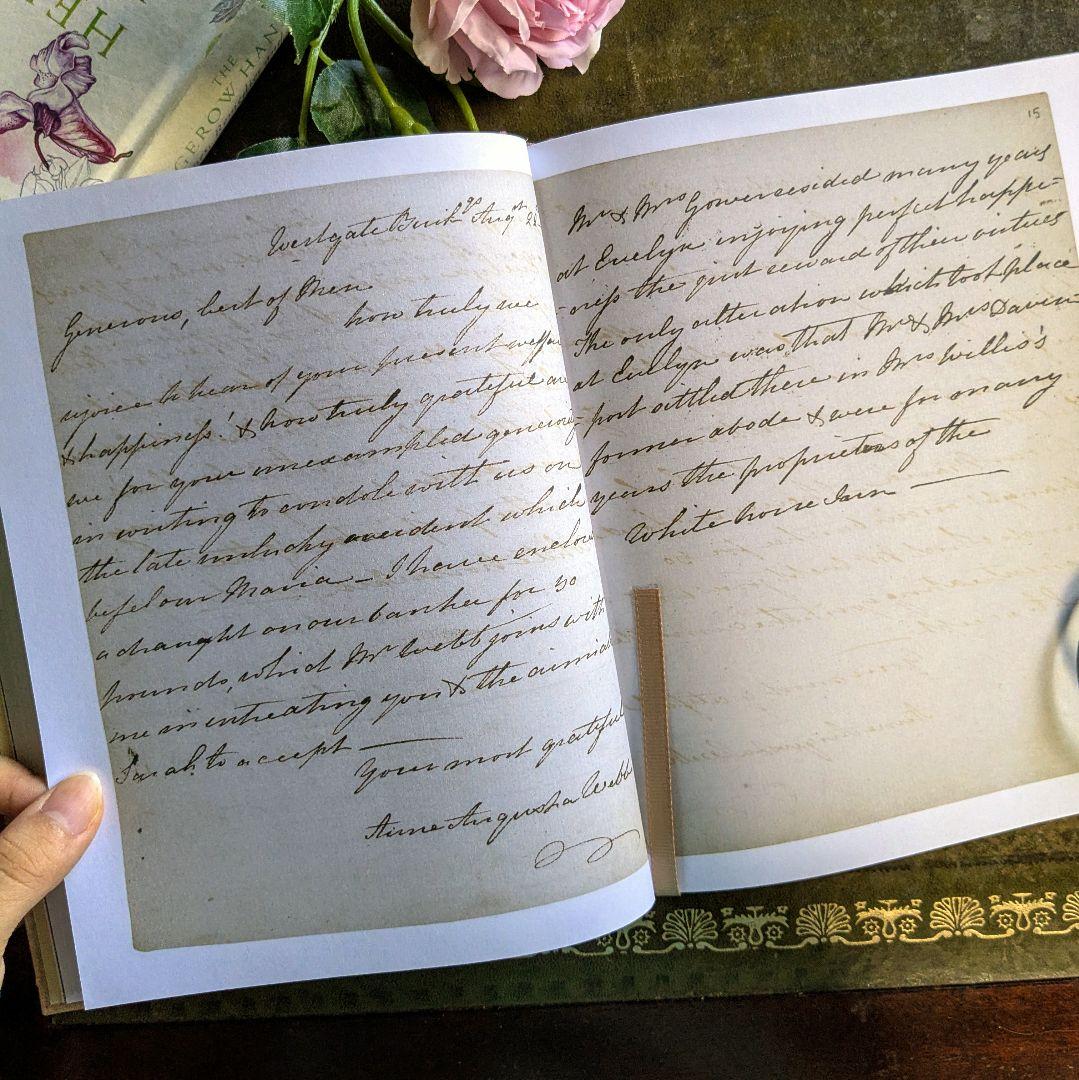 HE
THE
GEROW HAN
Westgate Build.gs Aug.st 22
Generous, best of Men
how truly we
rejoice to hear of your present welfare
& happiness! & how truly grateful are
we for your unexampled generosi-
in writing to condole with us on
the late unlucky accident which
befel our Maria — I have enclos
a draught on our banker for 30
pounds, which Mr Webb joins with
me in intreating you & the aimia
Sarah to accept —
Your most grateful
Anne Augusta Webb
15
Mr & Mrs Gower resided many years
at Evelyn enjoying perfect happi-
-ness the just reward of their virtues
The only alteration which took place
at Evelyn was that Mr & Mrs Daven
-port settled there in Mrs Willis's
former abode & were for many
years the proprietors of the
White horse Inn —